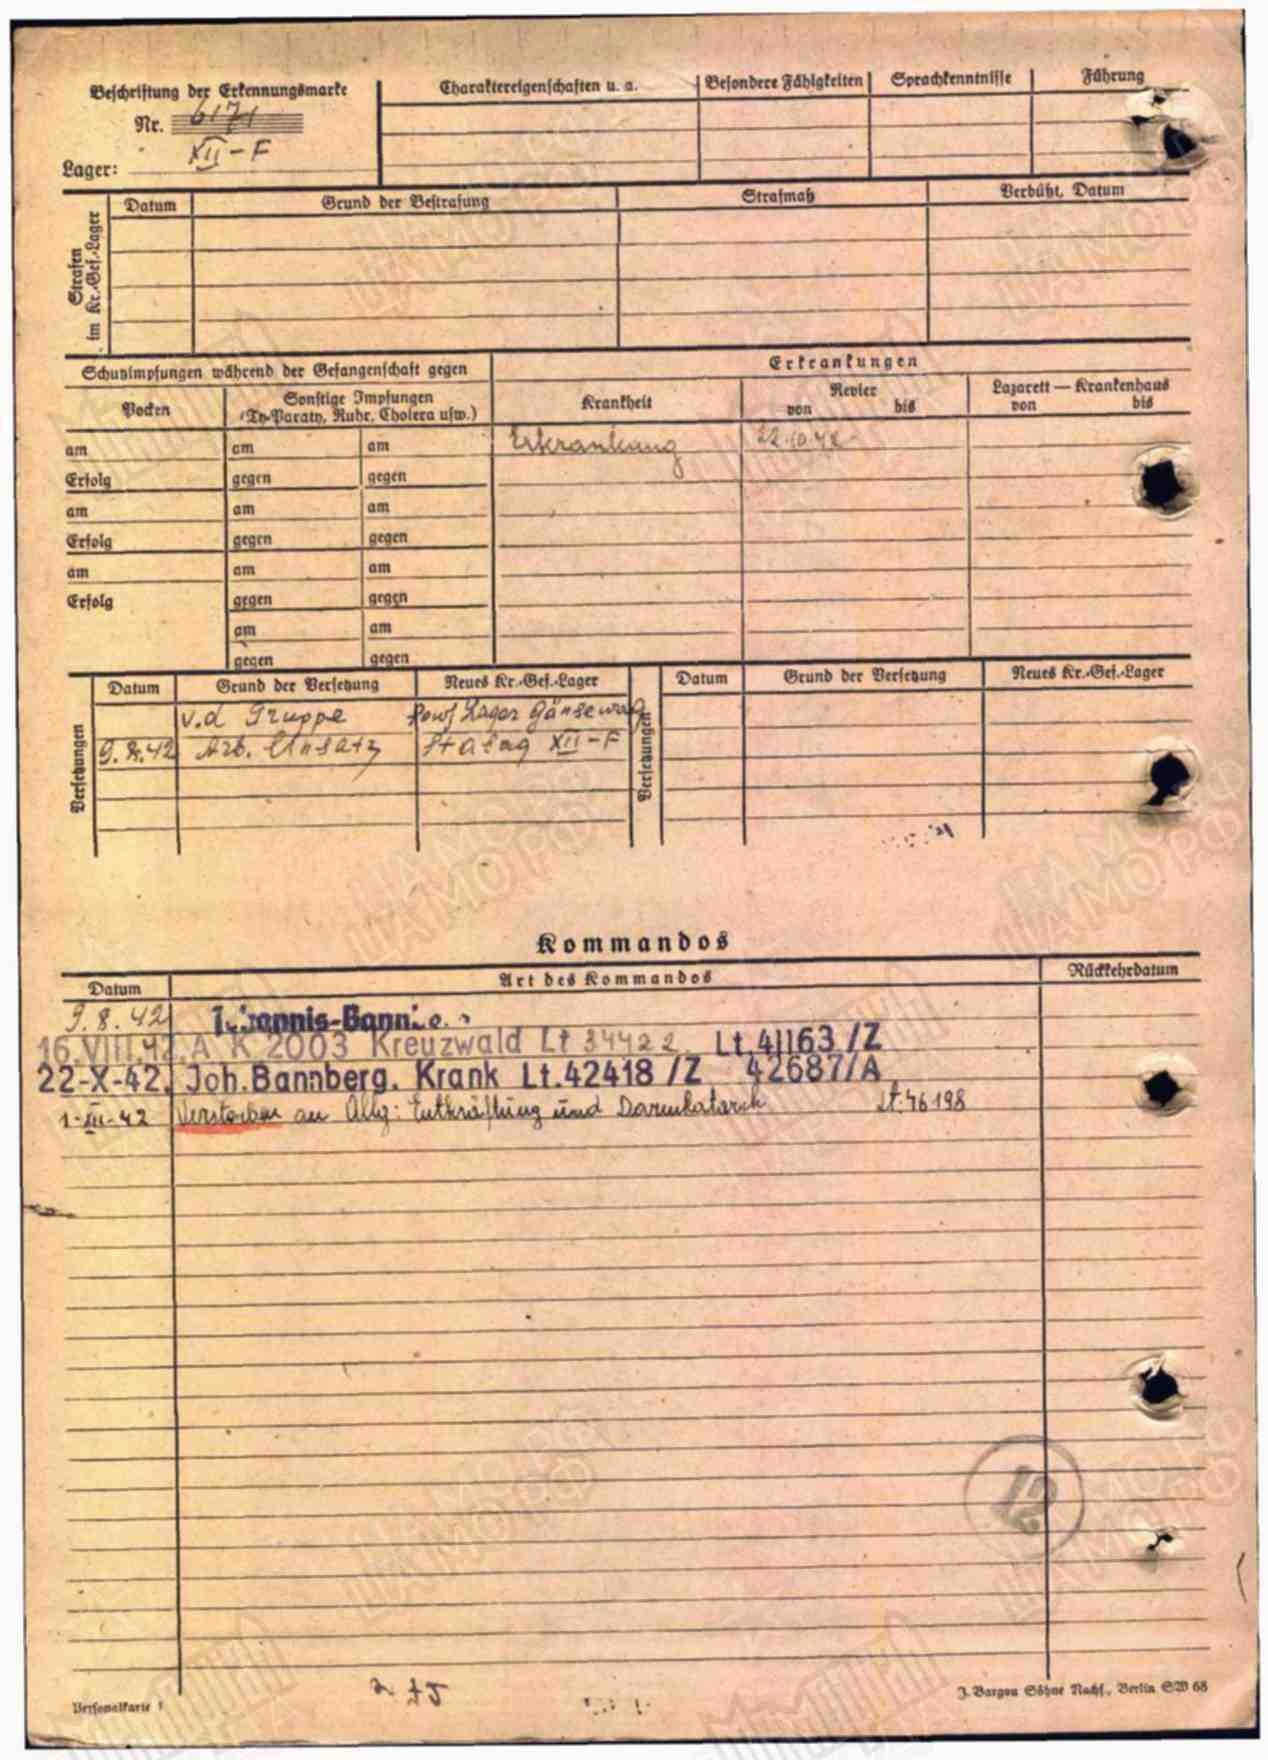 Beschriftung der Erkennungsmarke
Nr. 6171
XII-F
Lager:
Charaktereigenschaften u. a.
Besondere Fähigkeiten
Sprachkenntnisse
Führung
Strafen im Kr.-Gef.-Lager
Datum
Grund der Bestrafung
Strafmaß
Verbüßt, Datum
Schutzimpfungen während der Gefangenschaft gegen
Erkrankungen
Pocken
Sonstige Impfungen
(Ty-Paraty, Ruhr, Cholera usw.)
Krankheit
Revier
von bis
Lazarett — Krankenhaus
von bis
am am am Erkrankung 22.10.42
Erfolg gegen gegen
am am am
Erfolg gegen gegen
am am am
Erfolg gegen gegen
am am
gegen gegen
Versetzungen
Datum Grund der Versetzung Neues Kr.-Gef.-Lager
v.d Gruppe Lager
9.8.42 Arb. Einsatz Stalag XII-F
Versetzungen
Datum Grund der Versetzung Neues Kr.-Gef.-Lager
Kommandos
Datum Art des Kommandos Rückkehrdatum
9.8.42 Johannis-Bann
16.VIII.42. A K 2003 Kreuzwald Lt 34422 Lt.41163/Z
22-X-42. Joh.Bannberg. Krank Lt.42418/Z 42687/A
1-XII-42 Verstorben an Allg: Entkräftung und Darmkatarrh Lt.46198
12
Personalkarte I
J. Bargou Söhne Nachf., Berlin SW 68
ЦАМО РФ